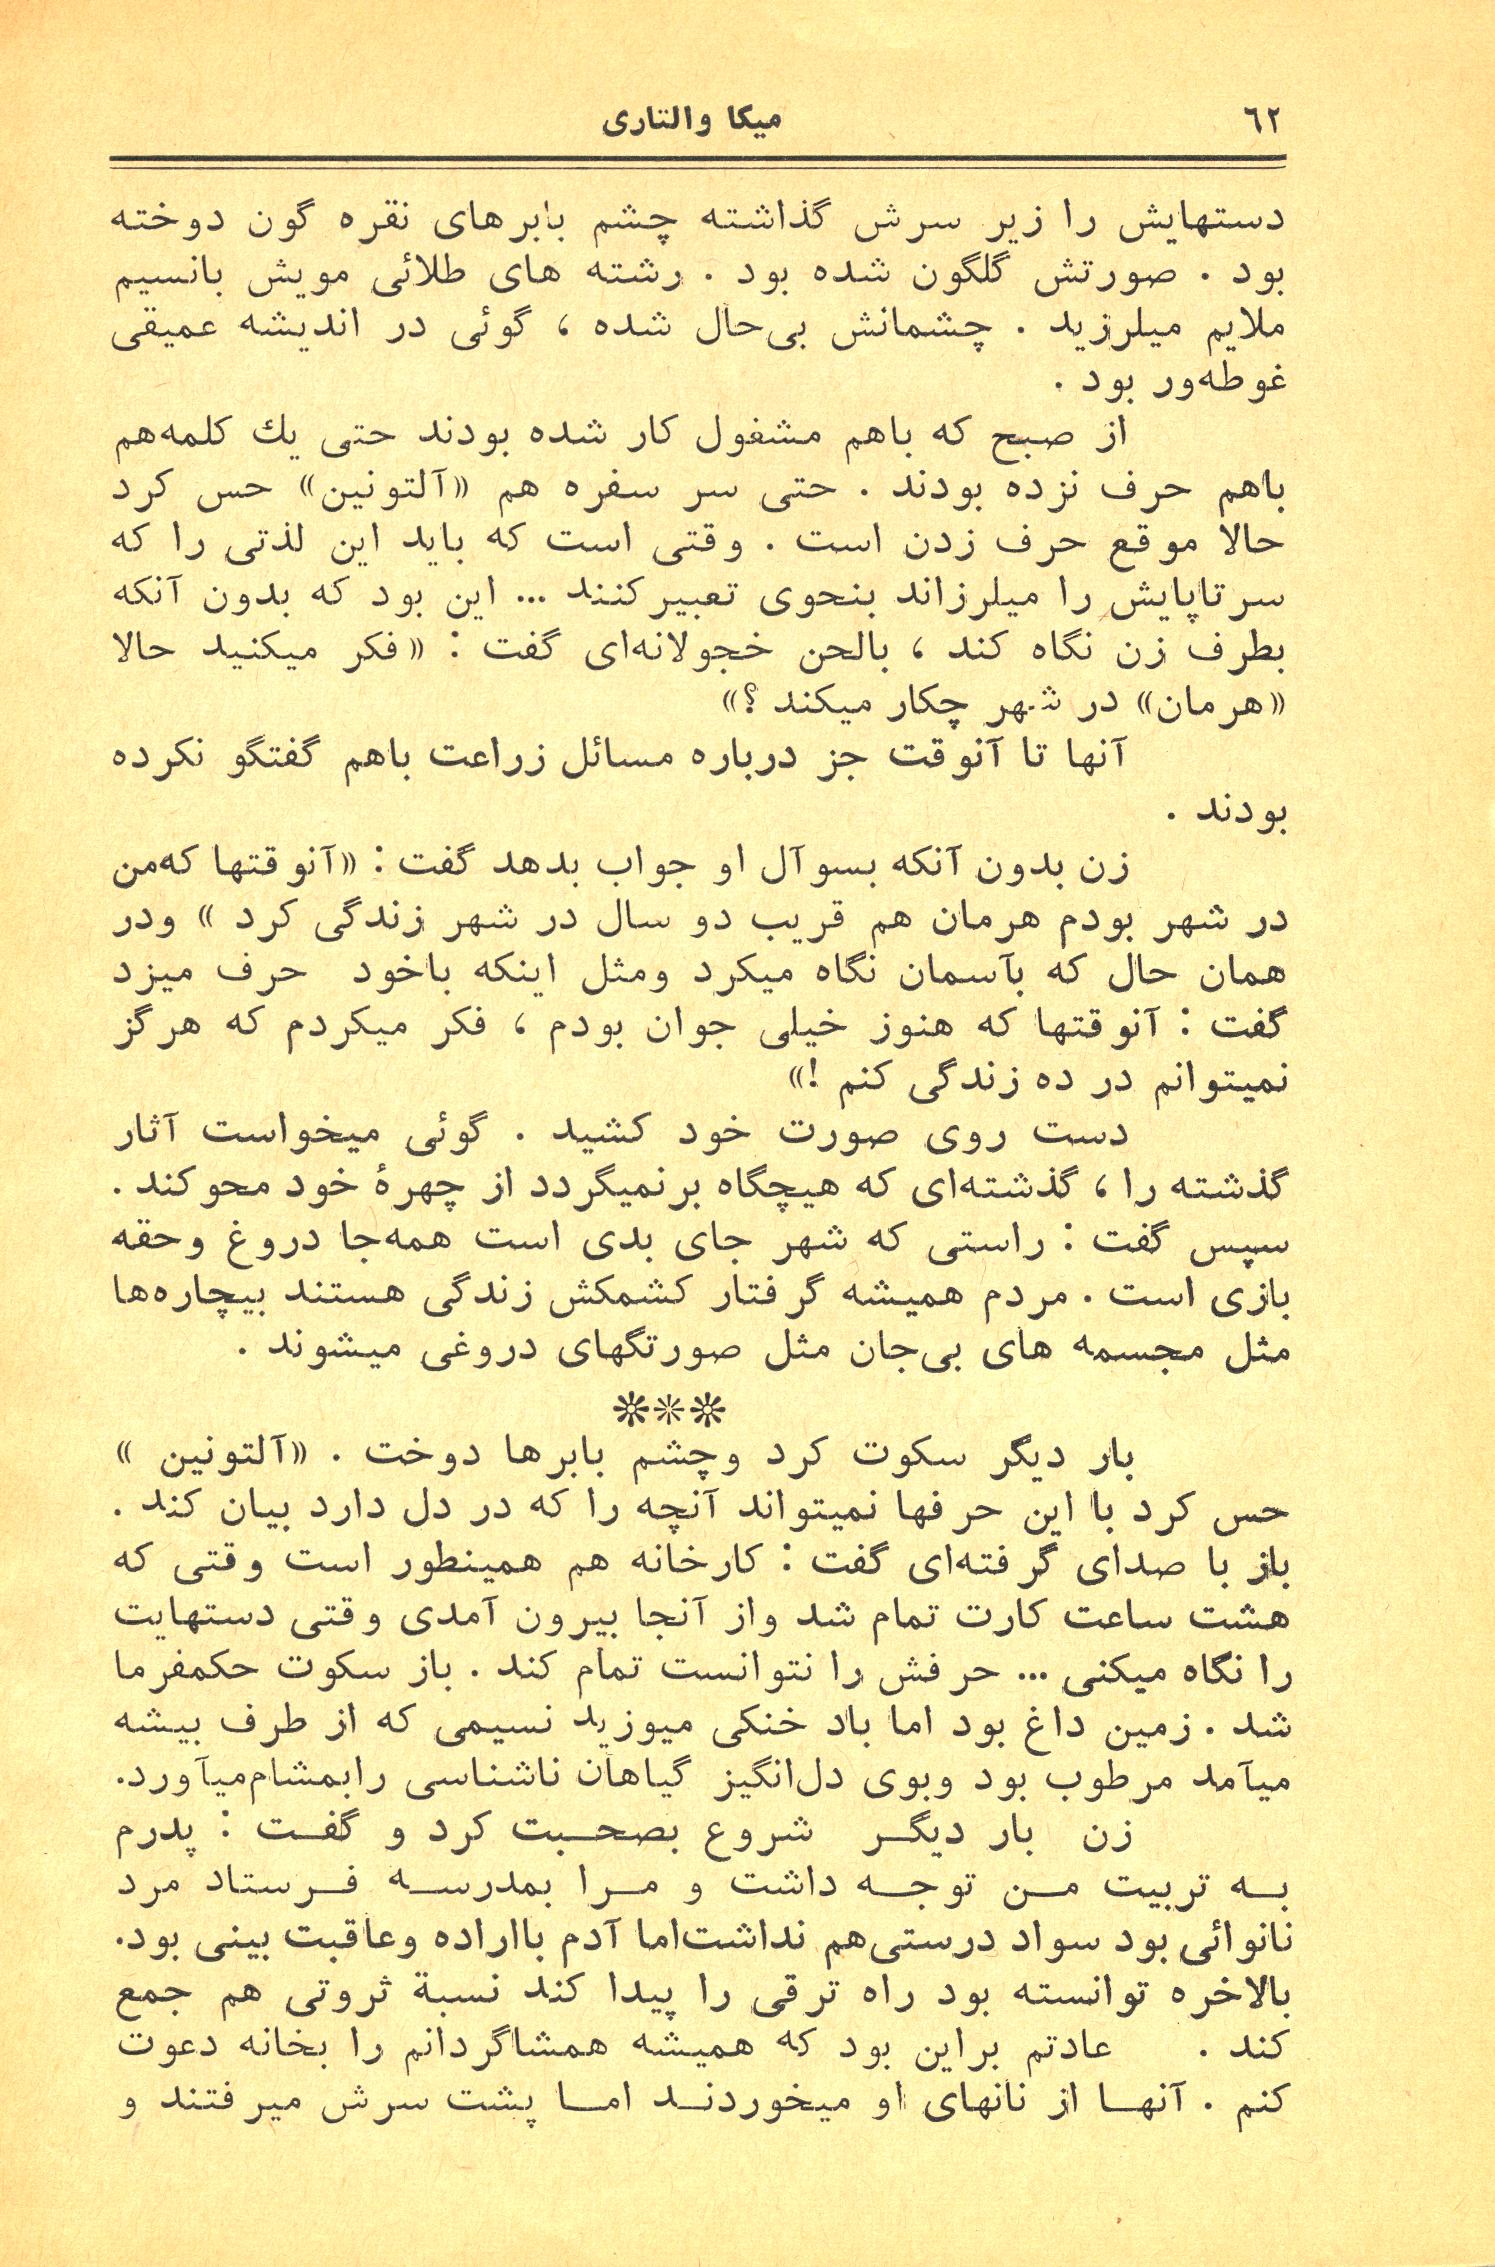 ۶۲
میکا والتاری
دستهایش را زیر سرش گذاشته چشم بابرهای نقره گون دوخته
بود . صورتش گلگون شده بود . رشته های طلائی مویش بانسیم
ملایم میلرزید . چشمانش بی‌حال شده ، گوئی در اندیشه عمیقی
غوطه‌ور بود .
از صبح که باهم مشغول کار شده بودند حتی یك کلمه‌هم
باهم حرف نزده بودند . حتی سر سفره هم «آلتونین» حس کرد
حالا موقع حرف زدن است . وقتی است که باید این لذتی را که
سرتاپایش را میلرزاند بنحوی تعبیر کنند ... این بود که بدون آنکه
بطرف زن نگاه کند ، بالحن خجولانه‌ای گفت : «فکر میکنید حالا
«هرمان» در شهر چکار میکند ؟»
آنها تا آنوقت جز درباره مسائل زراعت باهم گفتگو نکرده
بودند .
زن بدون آنکه بسوآل او جواب بدهد گفت : «آنوقتها که‌من
در شهر بودم هرمان هم قریب دو سال در شهر زندگی کرد » ودر
همان حال که بآسمان نگاه میکرد ومثل اینکه باخود حرف میزد
گفت : آنوقتها که هنوز خیلی جوان بودم ، فکر میکردم که هرگز
نمیتوانم در ده زندگی کنم !»
دست روی صورت خود کشید . گوئی میخواست آثار
گذشته را ، گذشته‌ای که هیچگاه برنمیگردد از چهرهٔ خود محو کند .
سپس گفت : راستی که شهر جای بدی است همه‌جا دروغ وحقه
بازی است . مردم همیشه گرفتار کشمکش زندگی هستند بیچاره‌ها
مثل مجسمه های بی‌جان مثل صورتگهای دروغی میشوند .
❊❊❊
بار دیگر سکوت کرد وچشم بابرها دوخت . «آلتونین »
حس کرد با این حرفها نمیتواند آنچه را که در دل دارد بیان کند .
باز با صدای گرفته‌ای گفت : کارخانه هم همینطور است وقتی که
هشت ساعت کارت تمام شد واز آنجا بیرون آمدی وقتی دستهایت
را نگاه میکنی ... حرفش را نتوانست تمام کند . باز سکوت حکمفرما
شد . زمین داغ بود اما باد خنکی میوزید نسیمی که از طرف بیشه
میآمد مرطوب بود وبوی دل‌انگیز گیاهان ناشناسی رابمشام‌میآورد.
زن بار دیگـر شروع بصحـبت کرد و گفـت : پدرم
بـه تربیت مـن توجـه داشت و مـرا بمدرسـه فـرستاد مرد
نانوائی بود سواد درستی‌هم نداشت‌اما آدم بااراده وعاقبت بینی بود.
بالاخره توانسته بود راه ترقی را پیدا کند نسبة ثروتی هم جمع
کند . عادتم براین بود که همیشه همشاگردانم را بخانه دعوت
کنم . آنهـا از نانهای او میخوردنـد امـا پشت سرش میرفتند و